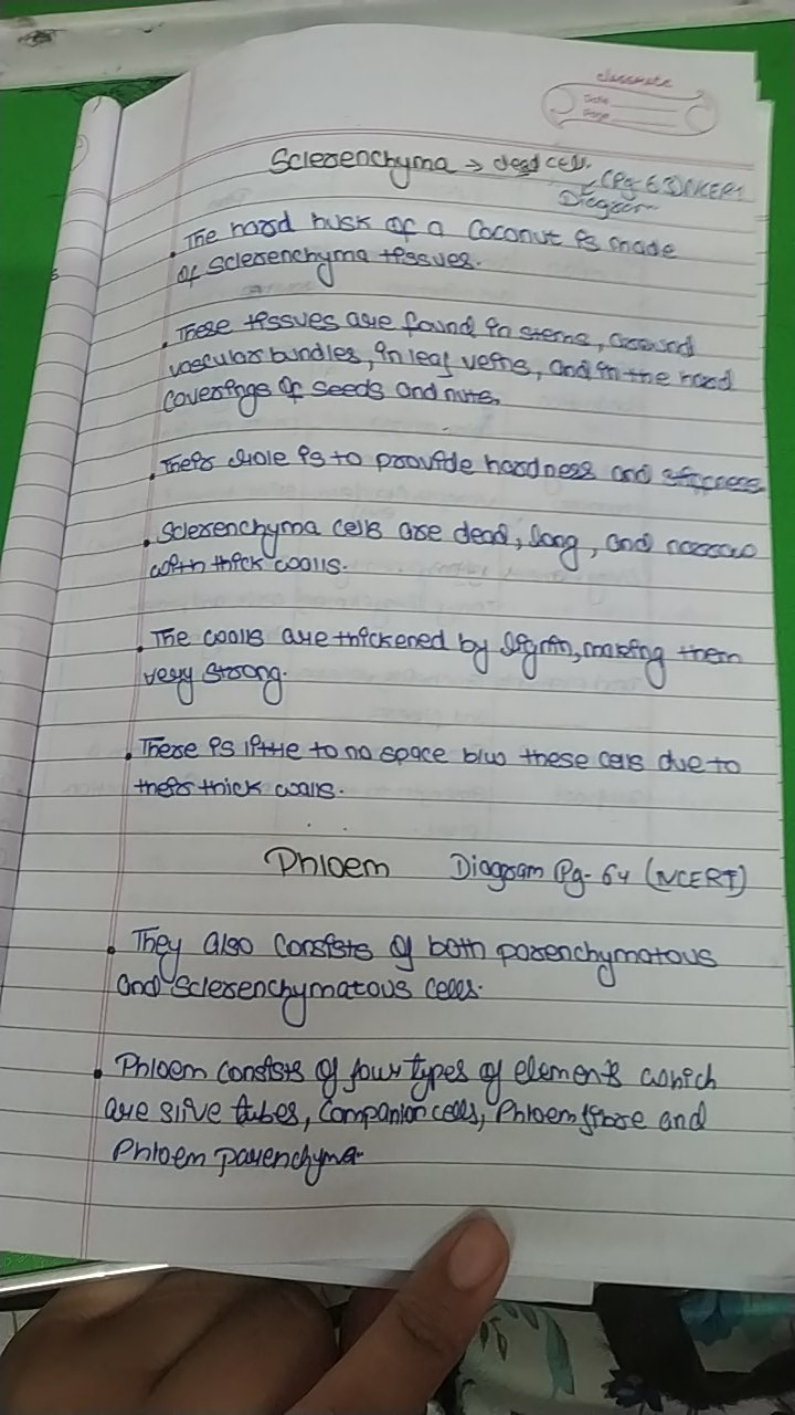 classmate
Date
Page
Sclerenchyma → dead cell.
(Pg-63) NCERT
Diagram
. The hard husk of a Coconut is made
of sclerenchyma tissues.
. These tissues are found in stems, around
vascular bundles, in leaf veins, and in the hard
coverings of seeds and nuts.
. Their role is to provide hardness and stiffness.
. Sclerenchyma cells are dead, long, and narrow
with thick walls.
. The walls are thickened by lignin, making them
very strong.
. There is little to no space b/w these cells due to
their thick walls.
Phloem Diagram Pg-64 (NCERT)
. They also consists of both parenchymatous
and sclerenchymatous cells.
. Phloem consists of four types of elements which
are sive tubes, Companion cells, Phloem fibre and
Phloem parenchyma.